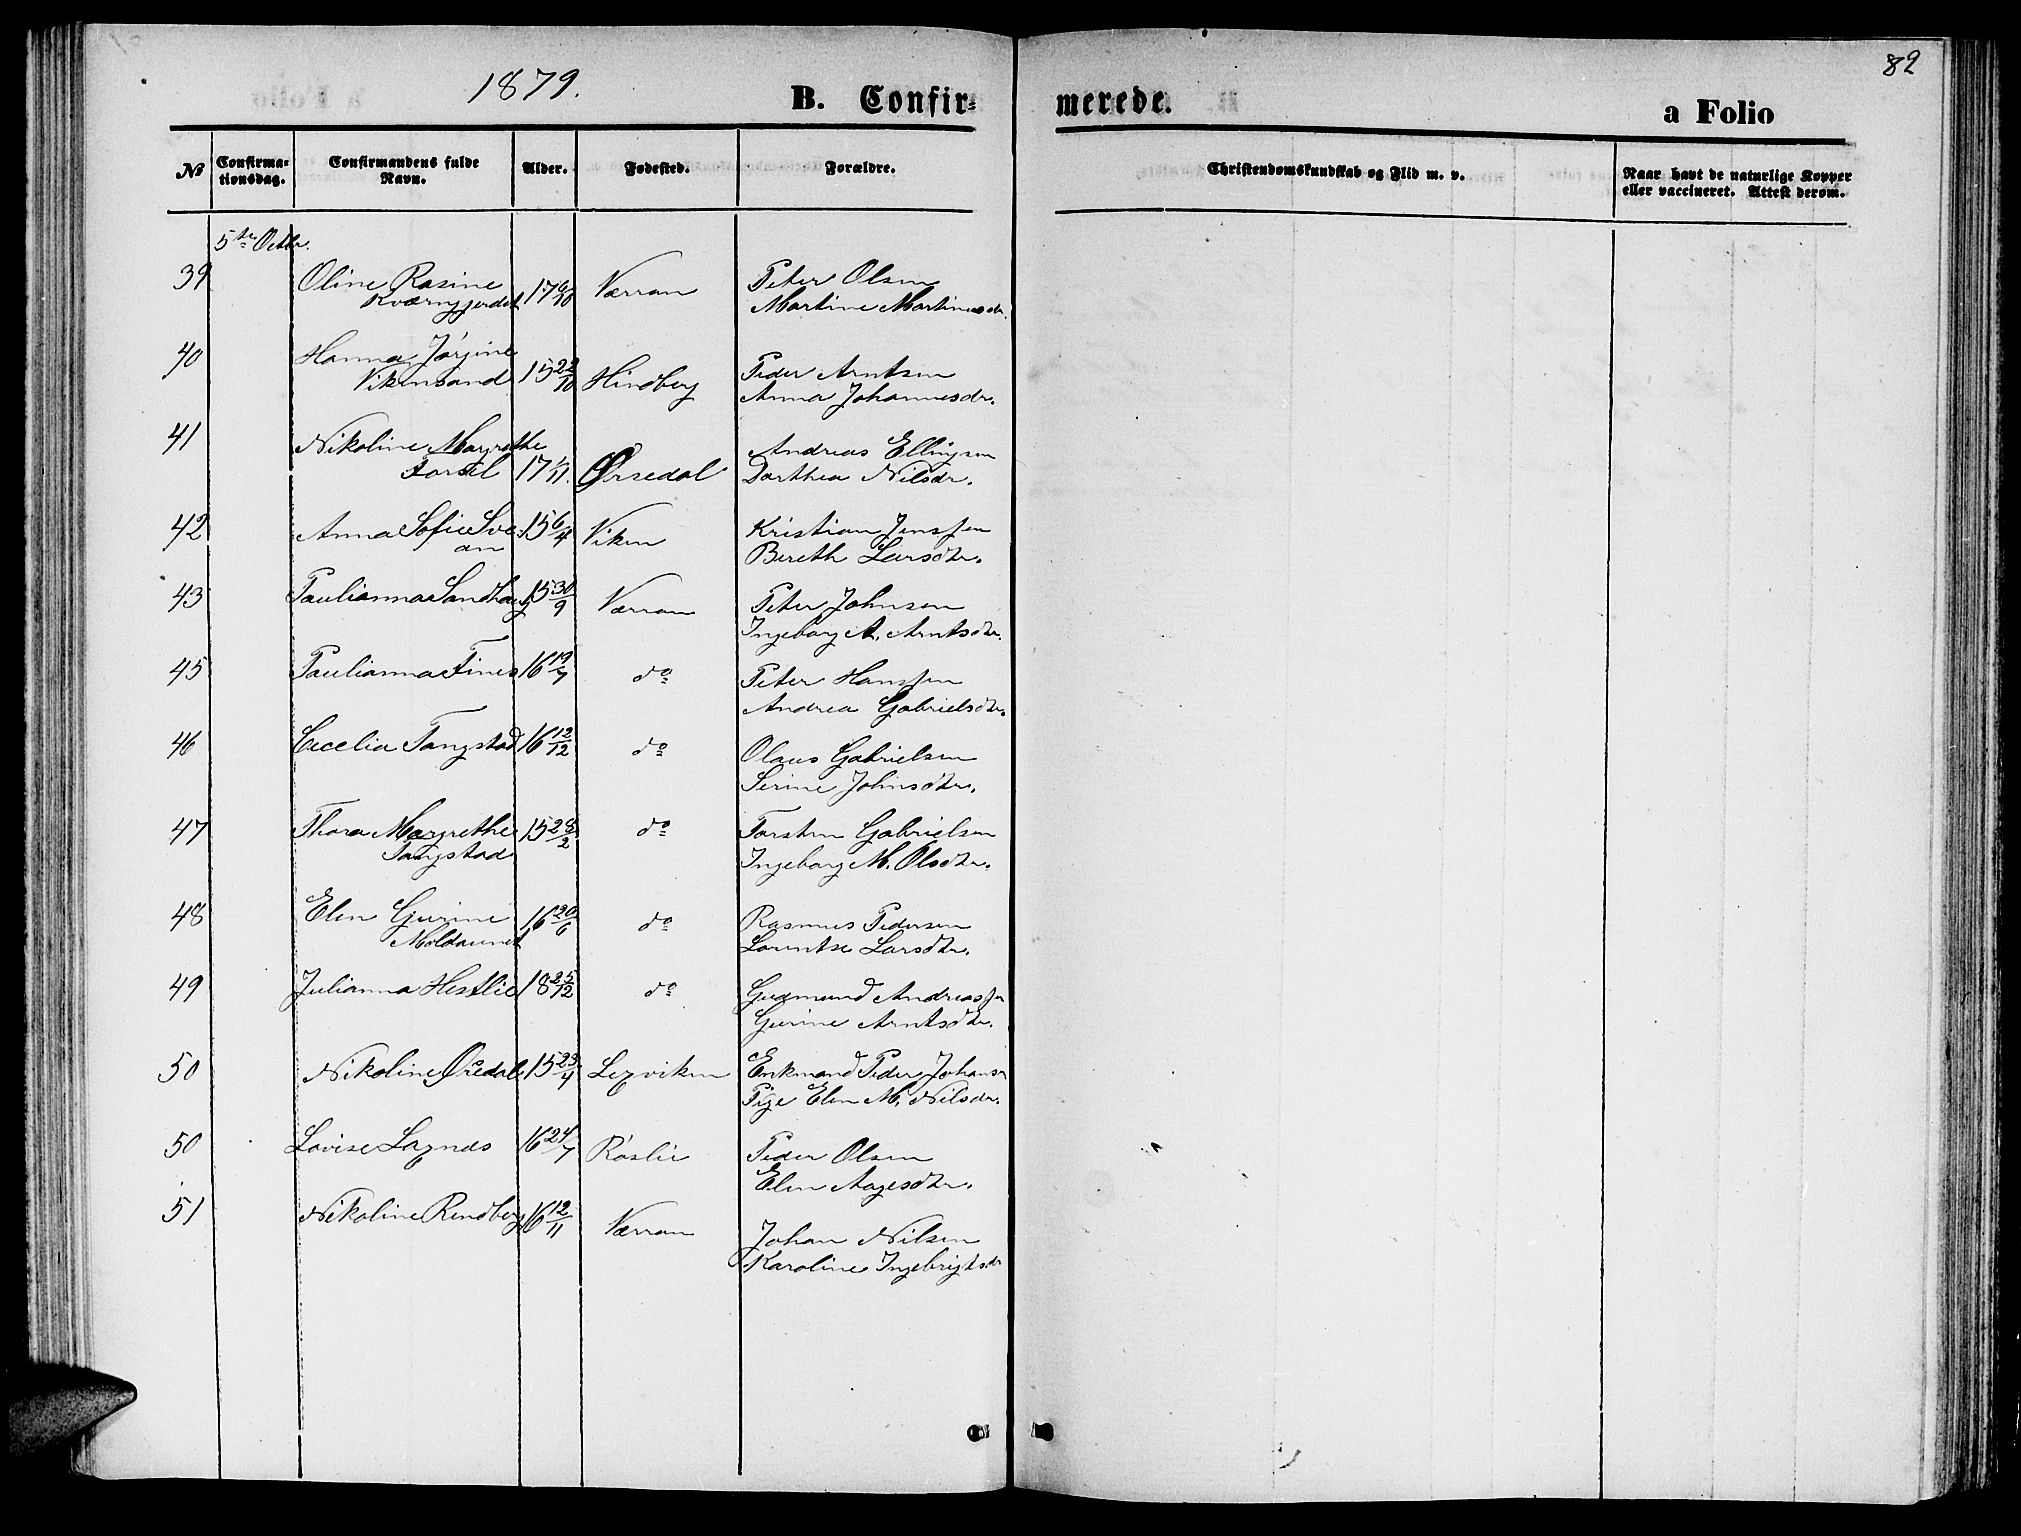 1879.
B. Confir-
merede.
a Folio
82
No
Confirma-
tionsdag.
Confirmandens fulde
Navn.
Alder.
Fødested.
Forældre.
Christendomskundskab og Flid m. v.
Naar havt de naturlige Kopper
eller vaccineret. Attest derom.
5te Octbr.
39 Oline Rasine 17 9/10 Værran Peter Olsen
Kværngjerdet Martine Martinusdr.
40 Hanna Jørgine 15 22/10 Hindberg Peder Arntsen
Vikensand Anna Johannesdr.
41 Nikoline Margrethe Andreas Ellingsen
17 1/11. Ørsedal Dorthea Nilsdr.
42 Anna Sofie Sve- 15 6/4 Viken Kristian Jenssen
an Bereth Larsdtr.
43 Paulianna Sandhaug 15 30/9 Værran Peter Johnsen
Ingeborg A. Arntsdtr.
45 Paulianna Fines 16 19/7 do Peter Hanssen
Andrea Gabrielsdtr.
46 Cecelia Tangstad 16 12/12 do Olaus Gabrielsen
Serine Johnsdtr.
47 Thora Margrethe 15 28/2 do Torsten Gabrielsen
Tangstad Ingeborg M. Olsdtr.
48 Elen Gurine 16 20/6 do Rasmus Pedersen
Moldaunet Lorentse Larsdtr.
49 Julianna Hestlie 18 25/12 do Gudmund Andreassen
Gurine Arntsdtr.
50 Nikoline Øredal 15 23/4 Lexviken Enkmand Peder Johans
Pige Elen M. Nilsdr.
50 Lovise Lagnes 16 24/7 Røslie Peder Olsen
Elen Aagesdtr.
51 Nikoline Rendberg 16 12/11 Værran Johan Nilsen
Karoline Ingebrigtsdr